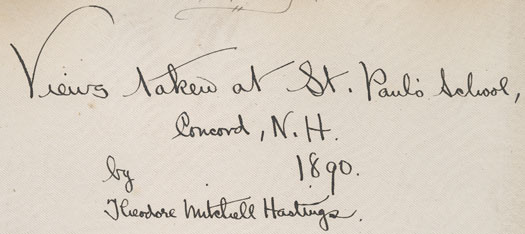 Views taken at St. Paul's School,
Concord, N.H.
by 1890.
Theodore Mitchell Hastings.